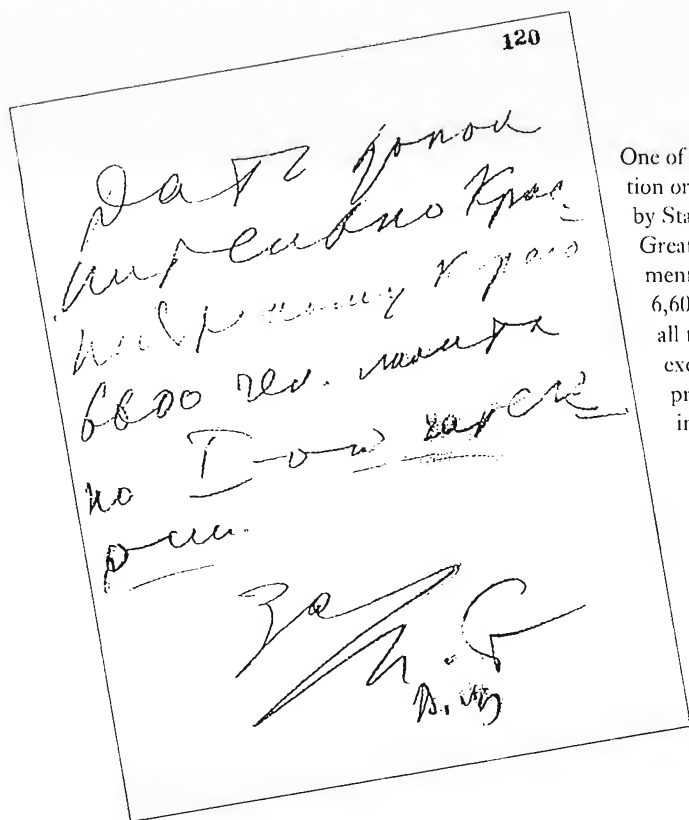 120
Дать допол
нительно Крас-
ноярскому краю
6600 чел. лимита
по I-ой катего
рии.
За
One of
tion or
by Sta
Great
ment
6,60
all t
exc
pr
in